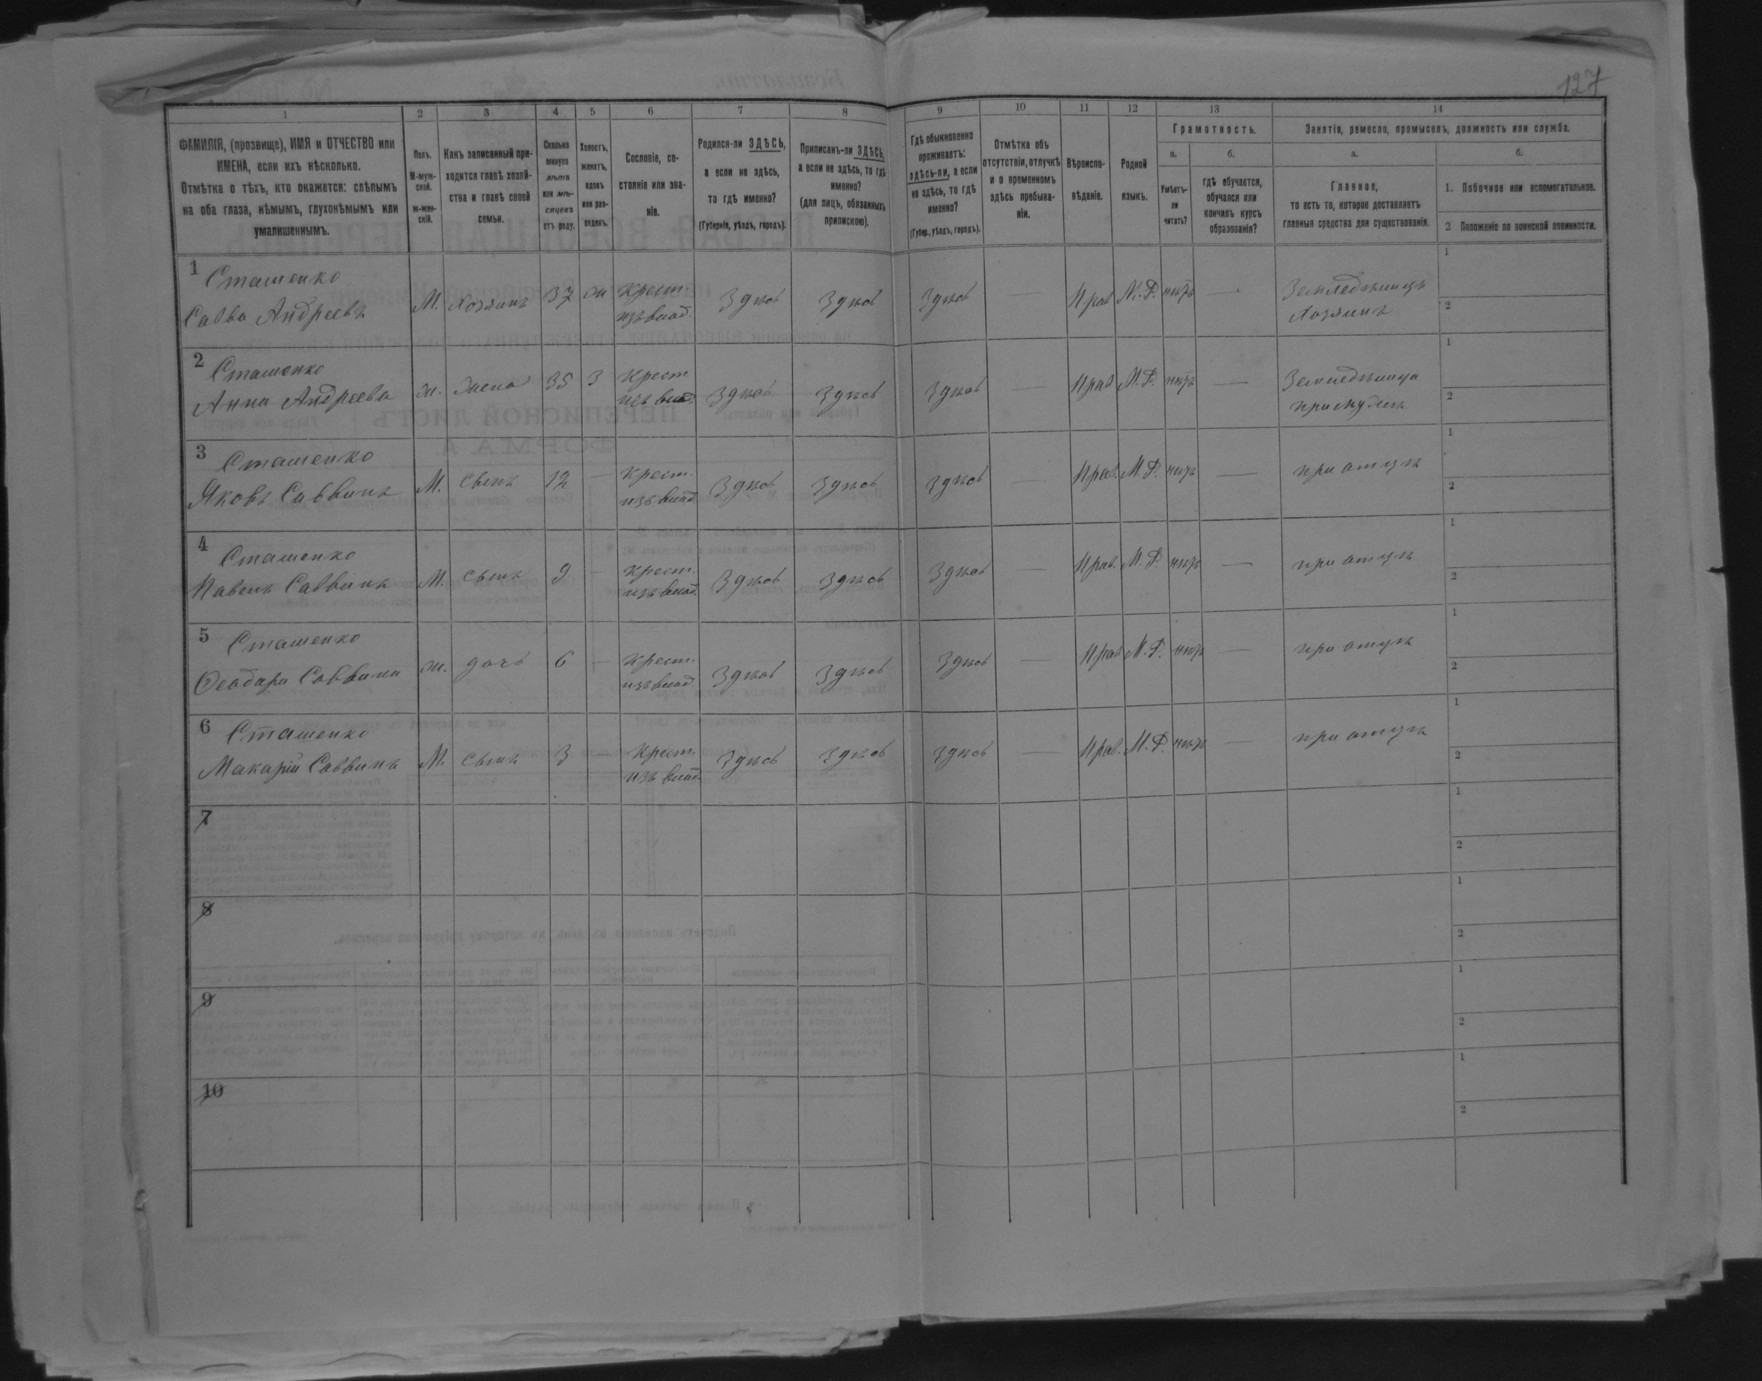 127
1 2 3 4 5 6 7 8 9 10 11 12 13 14
ФАМИЛІЯ, (прозвище), ИМЯ и ОТЧЕСТВО или
ИМЕНА, если ихъ нѣсколько.
Отмѣтка о тѣхъ, кто окажется: слѣпымъ
на оба глаза, нѣмымъ, глухонѣмымъ или
умалишеннымъ.
Полъ.
М-муж-
ской.
ж-жен-
скій.
Какъ записанный при-
ходится главѣ хозяй-
ства и главѣ своей
семьи.
Сколько
минуло
лѣтъ
или мѣ-
сяцевъ
отъ роду.
Холостъ,
женатъ,
вдовъ
или раз-
веденъ.
Сословіе, со-
стояніе или зва-
ніе.
Родился-ли ЗДѢСЬ,
а если не здѣсь,
то гдѣ именно?
(Губернія, уѣздъ, городъ).
Приписанъ-ли ЗДѢСЬ,
а если не здѣсь, то гдѣ
именно?
(для лицъ, обязанныхъ
припискою).
Гдѣ обыкновенно
проживаетъ:
здѣсь-ли, а если
не здѣсь, то гдѣ
именно?
(Губер., уѣздъ, городъ).
Отмѣтка объ
отсутствіи, отлучкѣ
и о временномъ
здѣсь пребыва-
ніи.
Вѣроиспо-
вѣданіе.
Родной
языкъ.
Грамотность.
а.
Умѣетъ-
ли
читать?
б.
гдѣ обучается,
обучался или
кончилъ курсъ
образованія?
Занятіе, ремесло, промыселъ, должность или служба.
а.
Главное,
то есть то, которое доставляетъ
главныя средства для существованія.
б.
1. Побочное или вспомогательное.
2 Положеніе по воинской повинности.
1 Сташенко
Савва Андреевъ М. Хозяинъ 37 Крест. Здѣсь Здѣсь Здѣсь — Прав М.Р. нѣтъ — Земледѣлецъ 1
изъ влад. Хозяинъ 2
2 Сташенко
Анна Андреева ж. Жена 35 3 Крест. Здѣсь Здѣсь Здѣсь — Прав М.Р. нѣтъ — Земледѣлица 1
изъ влад. при мужѣ 2
3 Сташенко
Яковъ Саввинъ М. Сынъ 12 — Крест. Здѣсь Здѣсь Здѣсь — Прав. М.Р. нѣтъ — при отцѣ 1
изъ влад. 2
4 Сташенко
Павелъ Саввинъ М. Сынъ 9 — Крест. Здѣсь Здѣсь Здѣсь — Прав. М.Р. нѣтъ — при отцѣ 1
изъ влад. 2
5 Сташенко
Саввина ж. дочь 6 — Крест. Здѣсь Здѣсь Здѣсь — Прав М.Р. нѣтъ — при отцѣ 1
изъ влад. 2
6 Сташенко
Макарій Саввинъ М. Сынъ 3 — Крест. Здѣсь Здѣсь Здѣсь — Прав. М.Р. нѣтъ — при отцѣ 1
изъ влад. 2
7 1
2
8 1
2
9 1
2
10 1
2